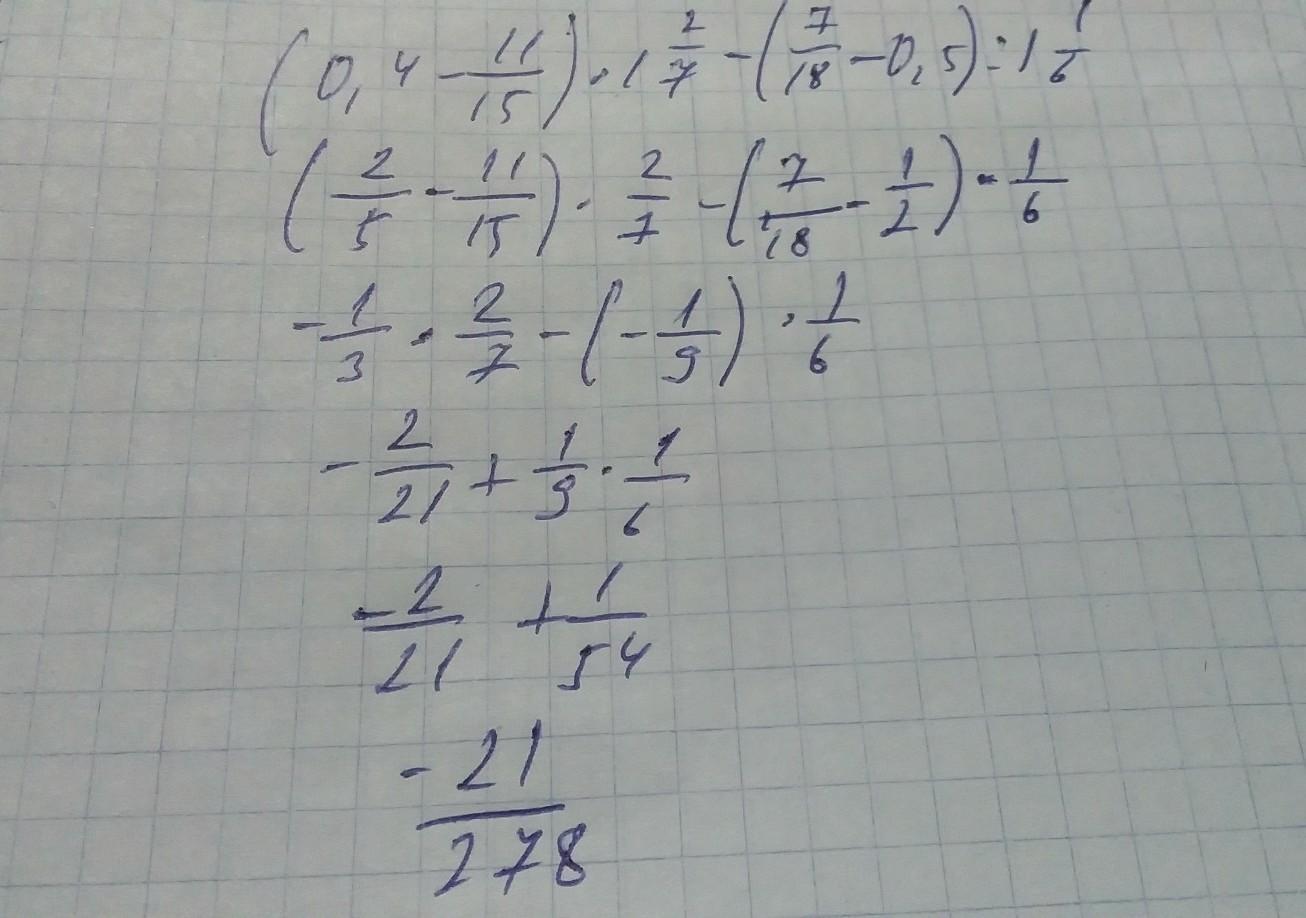 (0,4 - 11/15) · 1 2/7 - (7/18 - 0,5) : 1 1/6
(2/5 - 11/15) · 2/7 - (7/18 - 1/2) · 1/6
-1/3 · 2/7 - (-1/9) · 1/6
-2/21 + 1/9 · 1/6
-2/21 + 1/54
-21/278